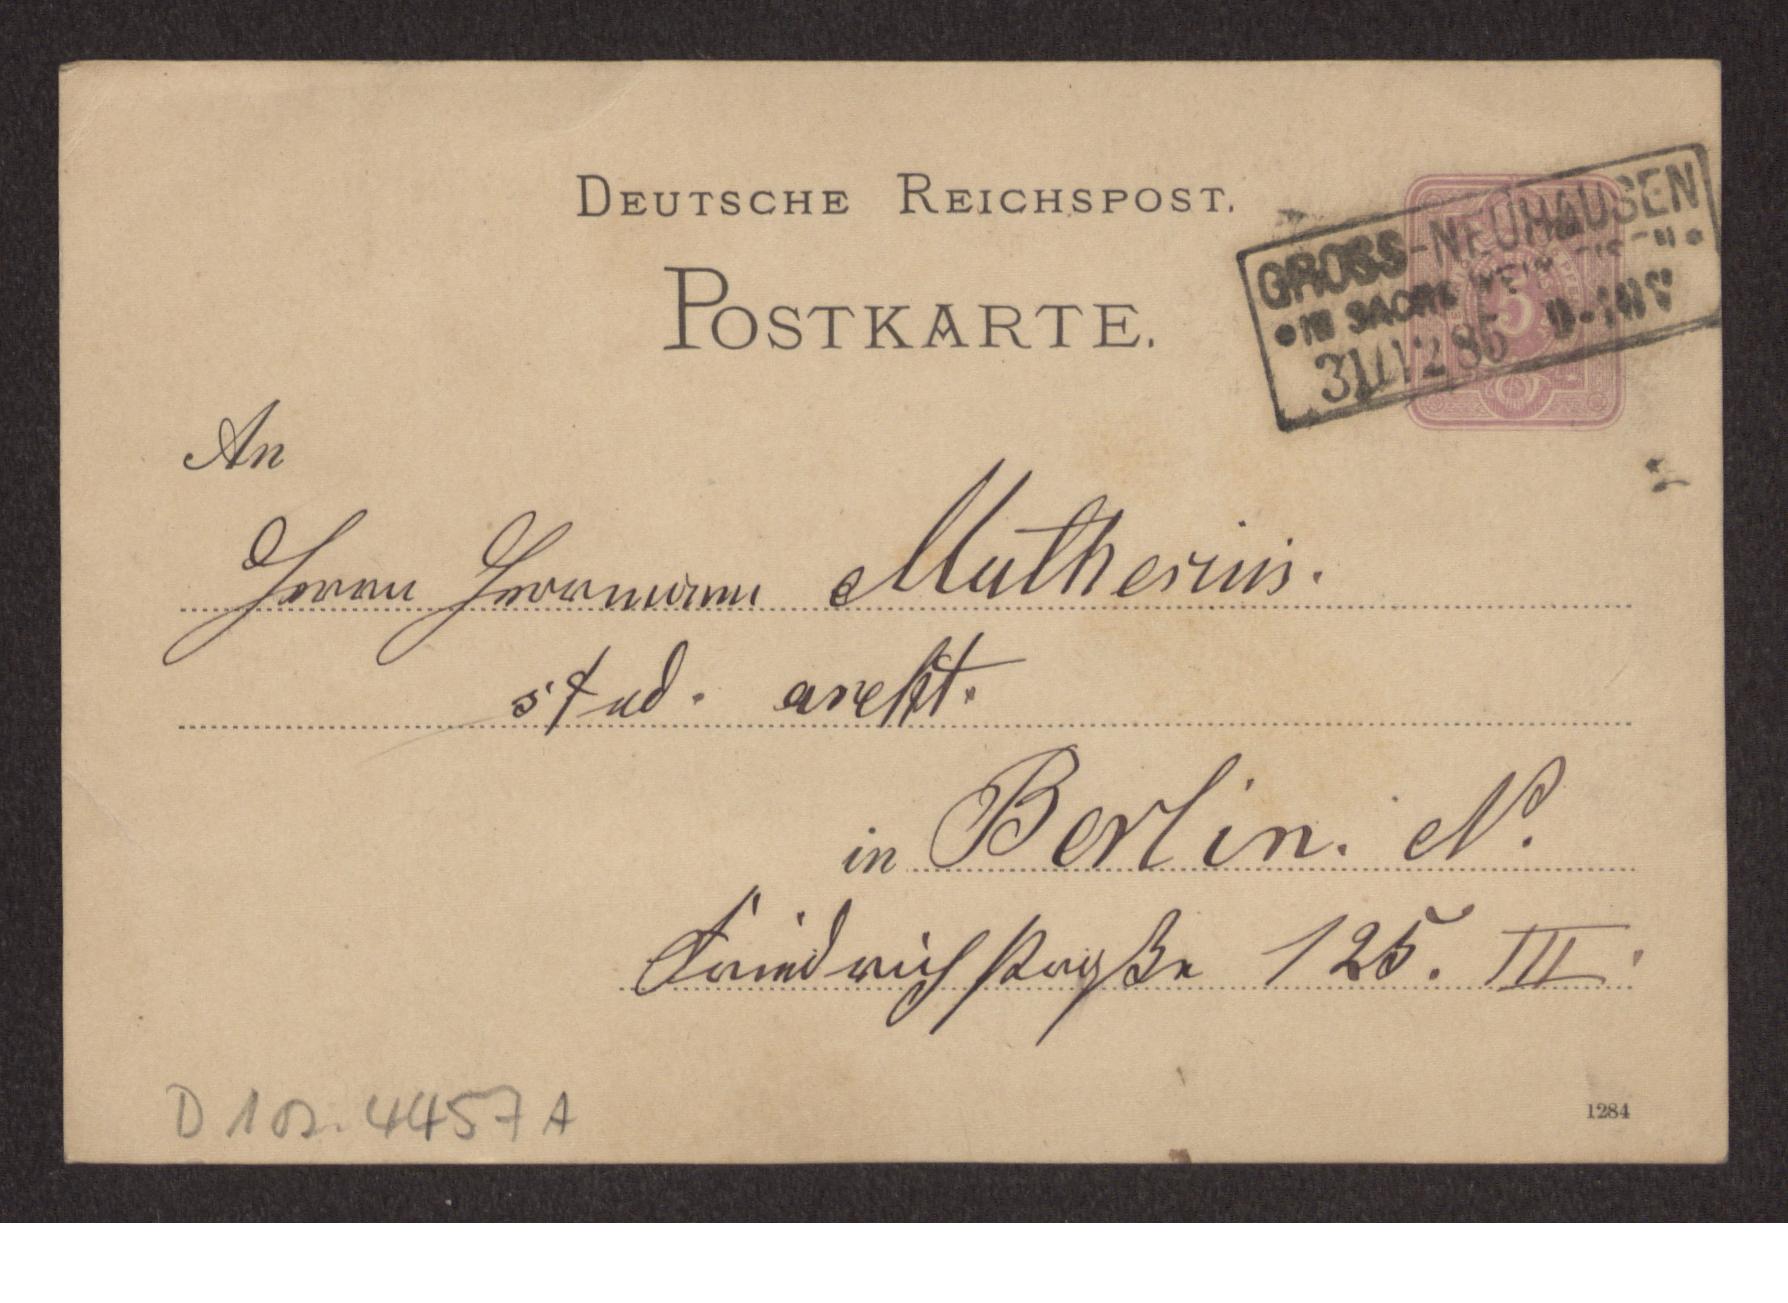 DEUTSCHE REICHSPOST.
POSTKARTE.
GROSS-NEUHAUSEN
31/12 85
5
An
Herrn Herrmann Muthesius.
stud. archt.
in Berlin. N.
Friedrichstraße 125. III.
D 102. 4457 A
1284